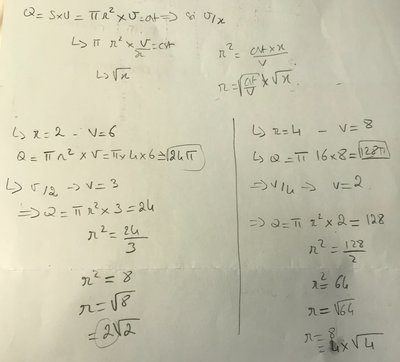 Q = S×V = π r² × v = cst => si v/x
↳ π r² × v/x = cst
↳ √x
r² = cst × x / v
r = √(cst/v) × √x
↳ r = 2 - V = 6
Q = π r² × v = π × 4 × 6 = 24π
↳ v/2 → V = 3
=> Q = π r² × 3 = 24
r² = 24/3
r² = 8
r = √8
= 2√2
↳ r = 4 - V = 8
↳ Q = π 16 × 8 = 128π
=> v/4 → V = 2
=> Q = π r² × 2 = 128
r² = 128/2
r² = 64
r = √64
r = 8
= 4 × √4